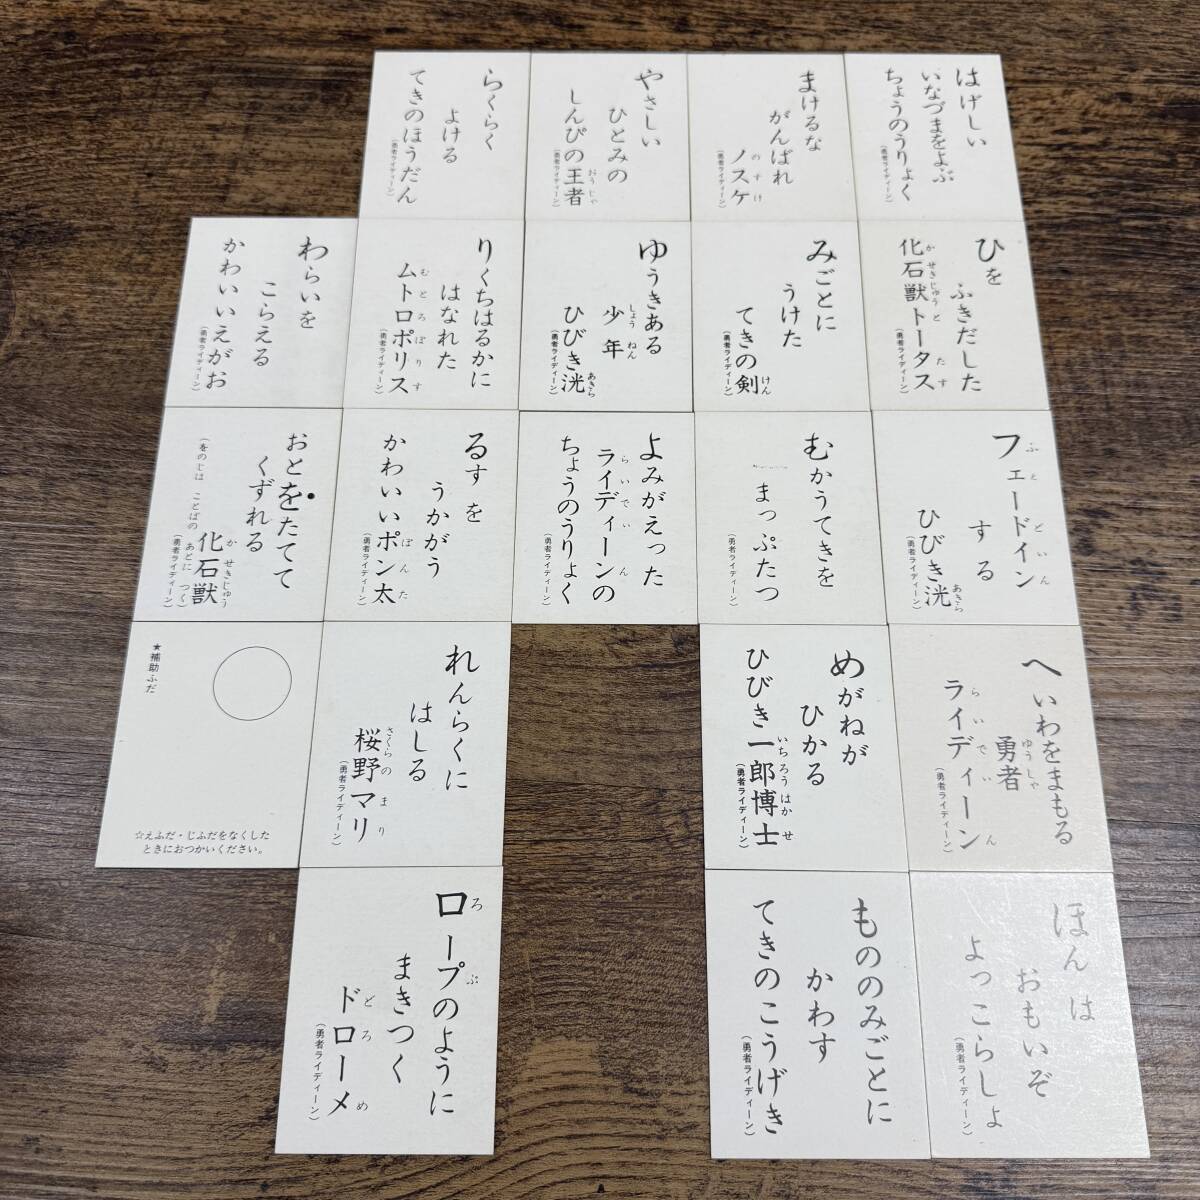 はげしい
いなづまをよぶ
ちょうのうりょく
(勇者ライディーン)
ひを
ふきだした
化石獣トータス
かせきじゅうと たす
(勇者ライディーン)
フェードイン
ふ ど いん
する
ひびき洸
あきら
(勇者ライディーン)
へいわをまもる
勇者
ゆうしゃ
ライディーン
らいでい ん
(勇者ライディーン)
ほんは
おもいぞ
よっこらしょ
(勇者ライディーン)
まけるな
がんばれ
ノスケ
のすけ
(勇者ライディーン)
みごとに
うけた
てきの剣
けん
(勇者ライディーン)
むかうてきを
まっぷたつ
(勇者ライディーン)
めがねが
ひかる
ひびき一郎博士
いちろうはかせ
(勇者ライディーン)
もののみごとに
かわす
てきのこうげき
(勇者ライディーン)
やさしい
ひとみの
しんぴの王者
おうじゃ
(勇者ライディーン)
ゆうきある
少年
しょうねん
ひびき洸
あきら
(勇者ライディーン)
よみがえった
ライディーンの
らいでい ん
ちょうのうりょく
(勇者ライディーン)
らくらく
よける
てきのほうだん
(勇者ライディーン)
りくちはるかに
はなれた
ムトロポリス
むとろぽりす
(勇者ライディーン)
るすを
うかがう
かわいいポン太
ぽんた
(勇者ライディーン)
れんらくに
はしる
桜野マリ
さくらのまり
(勇者ライディーン)
ロープのように
ろ ぷ
まきつく
ドローメ
どろ め
(勇者ライディーン)
わらいを
こらえる
かわいいえがお
(勇者ライディーン)
おとをたてて
くずれる
化石獣
かせきじゅう
(をのじは ことばの あとに つく)
(勇者ライディーン)
★補助ふだ
☆えふだ・じふだをなくした
ときにおつかいください。